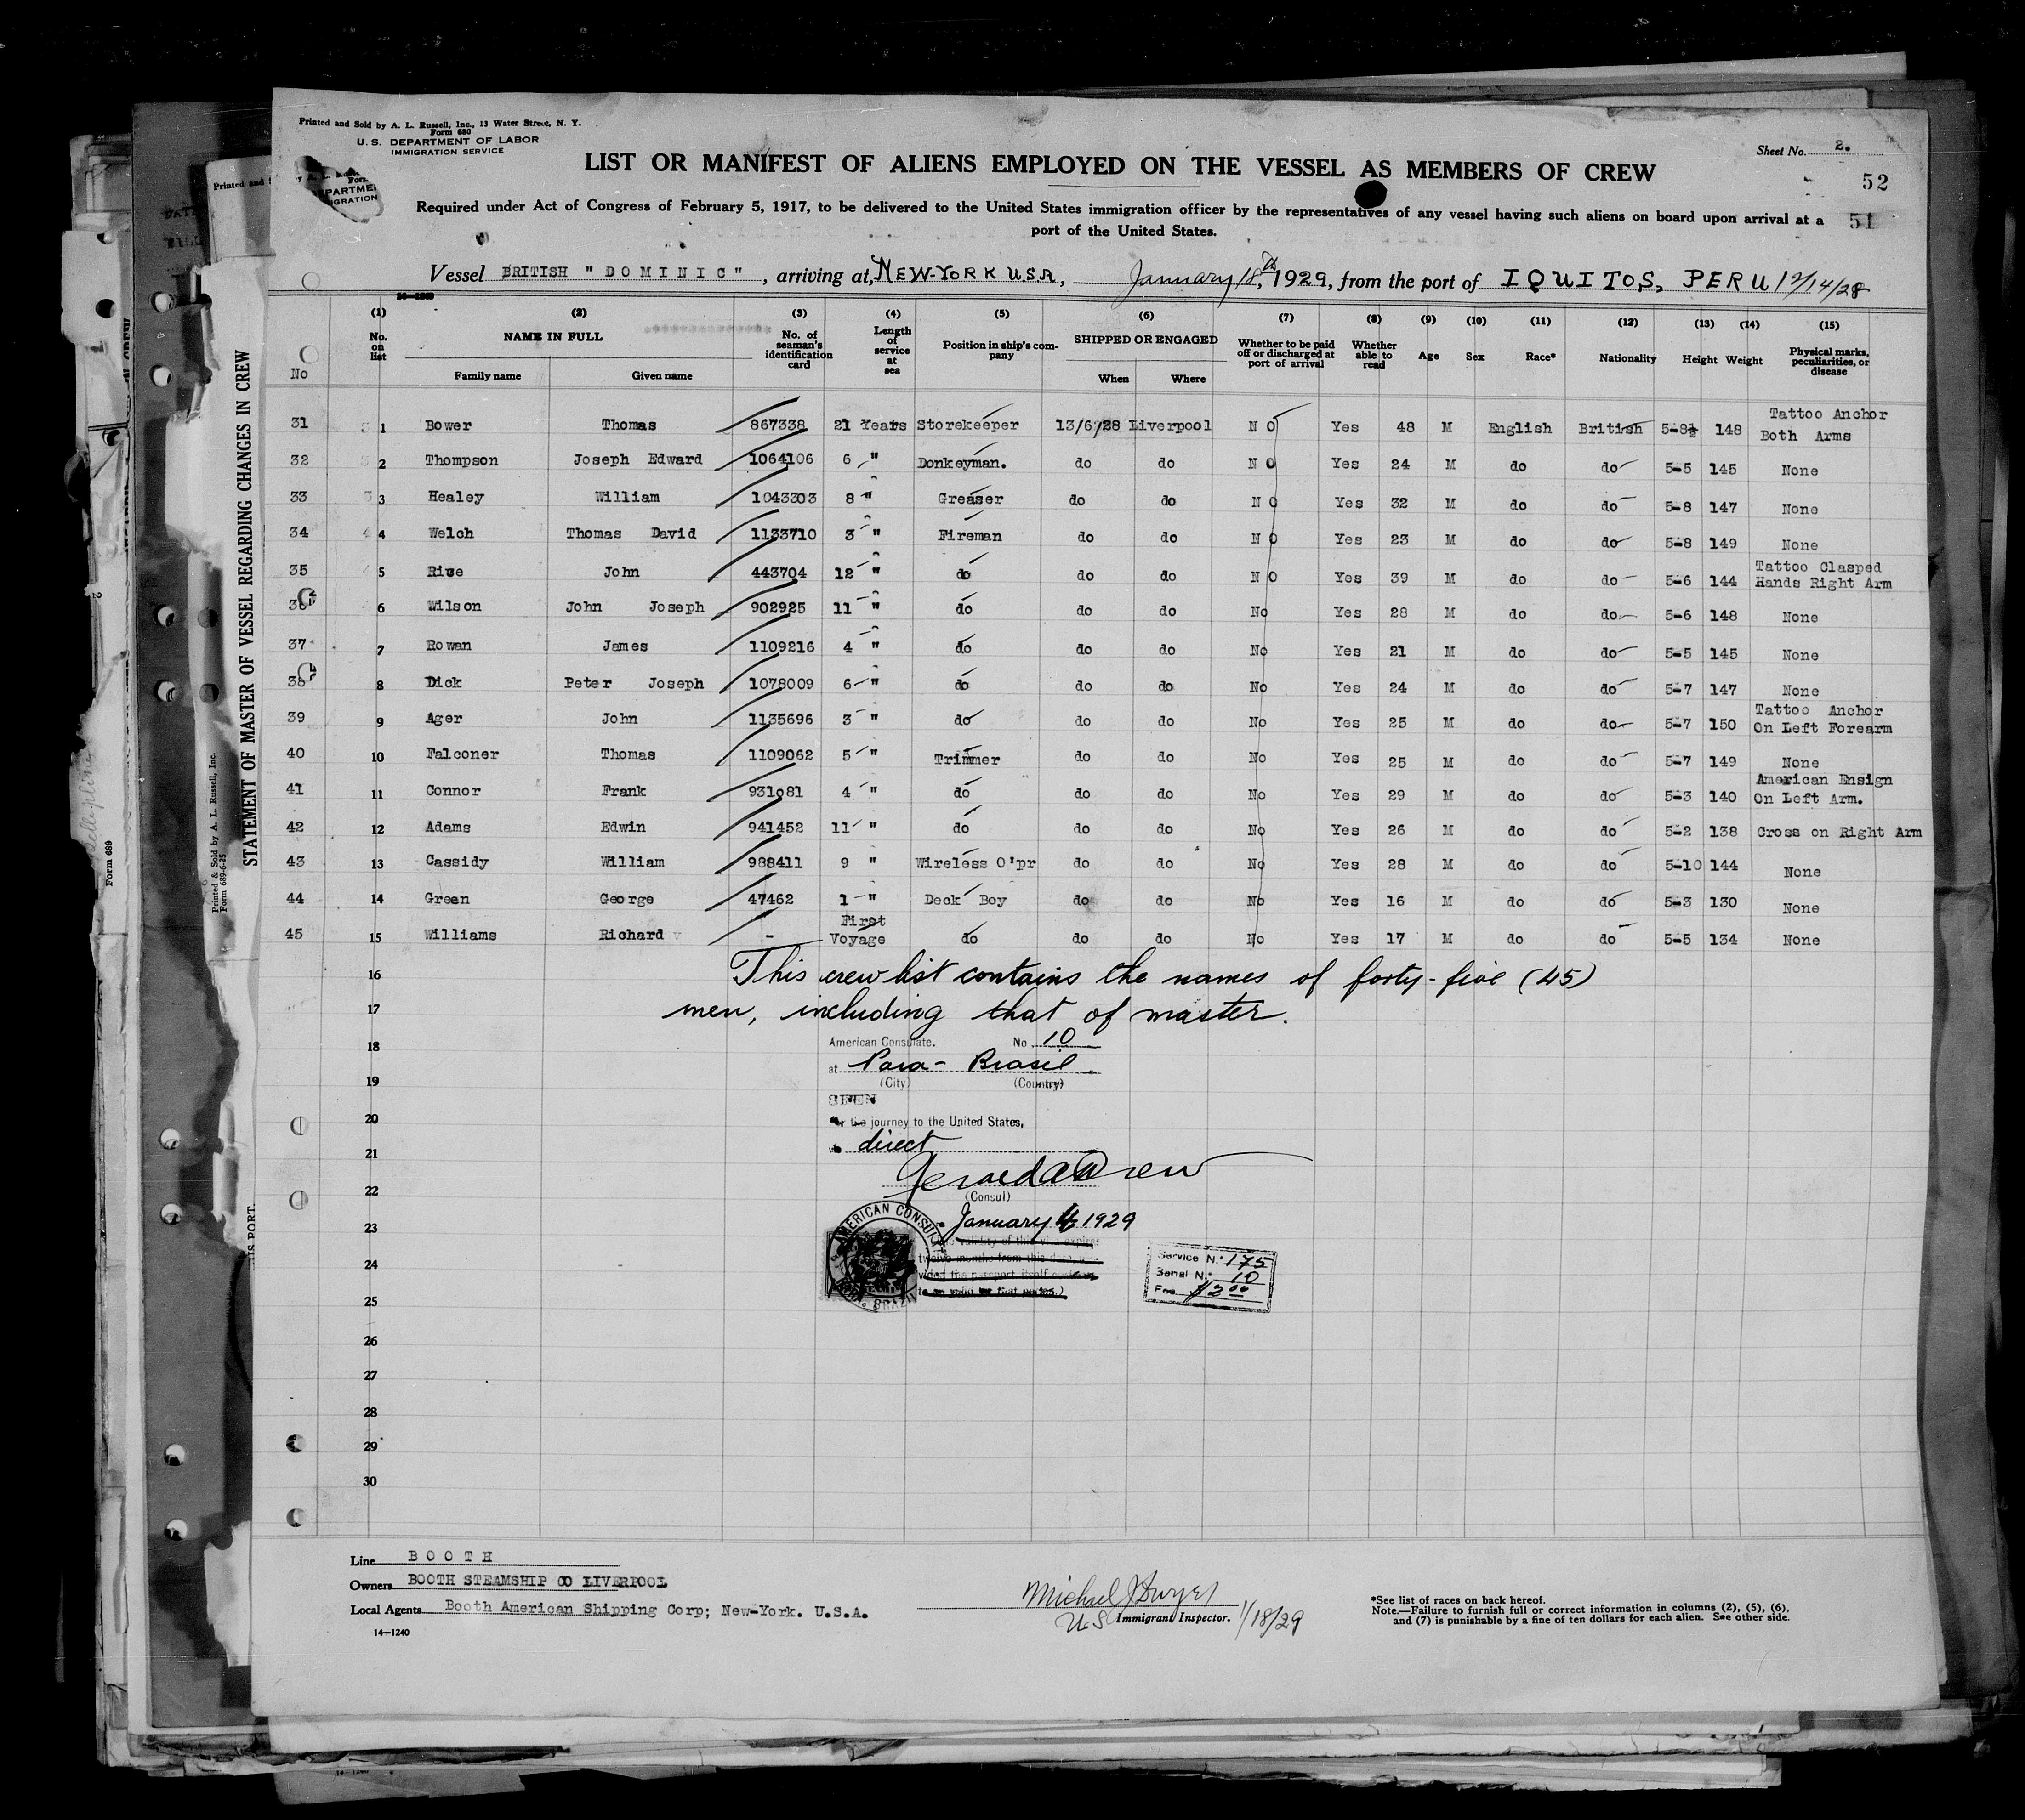 Printed and Sold by A. L. Russell, Inc., 13 Water Street, N. Y.
Form 680
U. S. DEPARTMENT OF LABOR
IMMIGRATION SERVICE
Sheet No. 2.
LIST OR MANIFEST OF ALIENS EMPLOYED ON THE VESSEL AS MEMBERS OF CREW
52
Required under Act of Congress of February 5, 1917, to be delivered to the United States immigration officer by the representatives of any vessel having such aliens on board upon arrival at a
51
port of the United States.
Vessel BRITISH "DOMINIC", arriving at, NEW-YORK U.S.A, January 18th, 1929, from the port of IQUITOS, PERU 12/14/28
(1) (2) (3) (4) (5) (6) (7) (8) (9) (10) (11) (12) (13) (14) (15)
No No. on list NAME IN FULL Family name Given name No. of seaman's identification card Length of service at sea Position in ship's company SHIPPED OR ENGAGED When Where Whether to be paid off or discharged at port of arrival Whether able to read Age Sex Race* Nationality Height Weight Physical marks, peculiarities, or disease
31 1 Bower Thomas 867338 21 Years Storekeeper 13/6/28 Liverpool NO Yes 48 M English British 5-8½ 148 Tattoo Anchor Both Arms
32 2 Thompson Joseph Edward 1064106 6 " Donkeyman. do do NO Yes 24 M do do 5-5 145 None
33 3 Healey William 1043303 8 " Greaser do do NO Yes 32 M do do 5-8 147 None
34 4 Welch Thomas David 1133710 3 " Fireman do do NO Yes 23 M do do 5-8 149 None
35 5 John 443704 12 " do do do NO Yes 39 M do do 5-6 144 Tattoo Clasped Hands Right Arm
36 6 Wilson John Joseph 902925 11 " do do do No Yes 28 M do do 5-6 148 None
37 7 Rowan James 1109216 4 " do do do No Yes 21 M do do 5-5 145 None
38 8 Dick Peter Joseph 1078009 6 " do do do No Yes 24 M do do 5-7 147 None
39 9 Ager John 1135696 3 " do do do No Yes 25 M do do 5-7 150 Tattoo Anchor On Left Forearm
40 10 Falconer Thomas 1109062 5 " Trimmer do do No Yes 25 M do do 5-7 149 None
41 11 Connor Frank 931081 4 " do do do No Yes 29 M do do 5-3 140 American Ensign On Left Arm.
42 12 Adams Edwin 941452 11 " do do do No Yes 26 M do do 5-2 138 Cross on Right Arm
43 13 Cassidy William 988411 9 " Wireless O'pr do do No Yes 28 M do do 5-10 144 None
44 14 Green George 47462 1 " Deck Boy do do No Yes 16 M do do 5-3 130 None
45 15 Williams Richard - First Voyage do do do No Yes 17 M do do 5-5 134 None
16 This crew list contains the names of forty-five (45)
17 men, including that of master.
18 American Consulate. No 10
at Para - Brasil
19 (City) (Country)
SEEN
20 for the journey to the United States,
21 direct
22 (Consul)
23 January 4 1929
24
25
AMERICAN CONSULATE
PARA, BRAZIL
Service No. 175
Serial No. 10
Fee $2.00
26
27
28
29
30
Line BOOTH
Owners BOOTH STEAMSHIP CO LIVERPOOL
Local Agents Booth American Shipping Corp; New-York. U.S.A.
14-1240
Michael J Dwyer
U.S. Immigrant Inspector. 1/18/29
*See list of races on back hereof.
Note.—Failure to furnish full or correct information in columns (2), (5), (6),
and (7) is punishable by a fine of ten dollars for each alien. See other side.
STATEMENT OF MASTER OF VESSEL REGARDING CHANGES IN CREW
Printed & Sold by A. L. Russell, Inc.
Form 689-6-25
Form 689